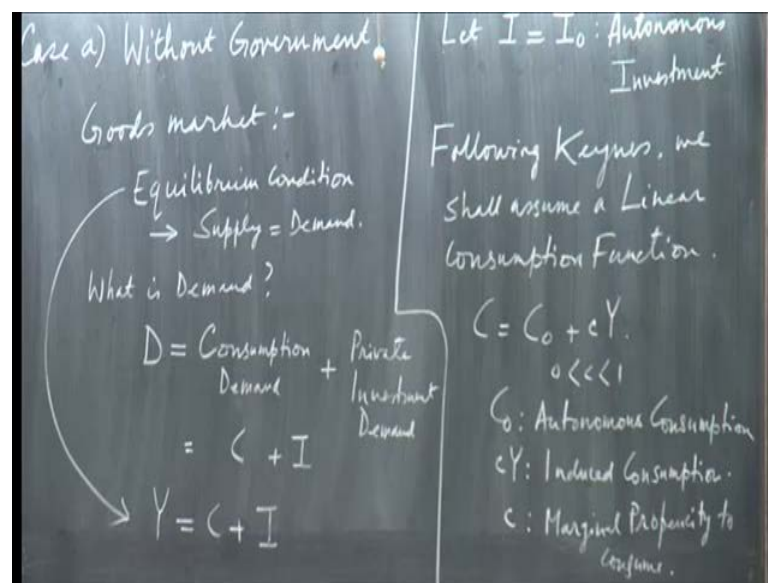 Case a) Without Government.
Goods market :-
Equilibrium Condition
→ Supply = Demand.
What is Demand?
D = Consumption Demand + Private Investment Demand
= C + I
Y = C + I
Let I = I₀ : Autonomous
Investment
Following Keynes, we
shall assume a Linear
Consumption Function.
C = C₀ + cY.
0 < c < 1
C₀ : Autonomous Consumption
cY : Induced Consumption.
c : Marginal Propensity to
Consume.